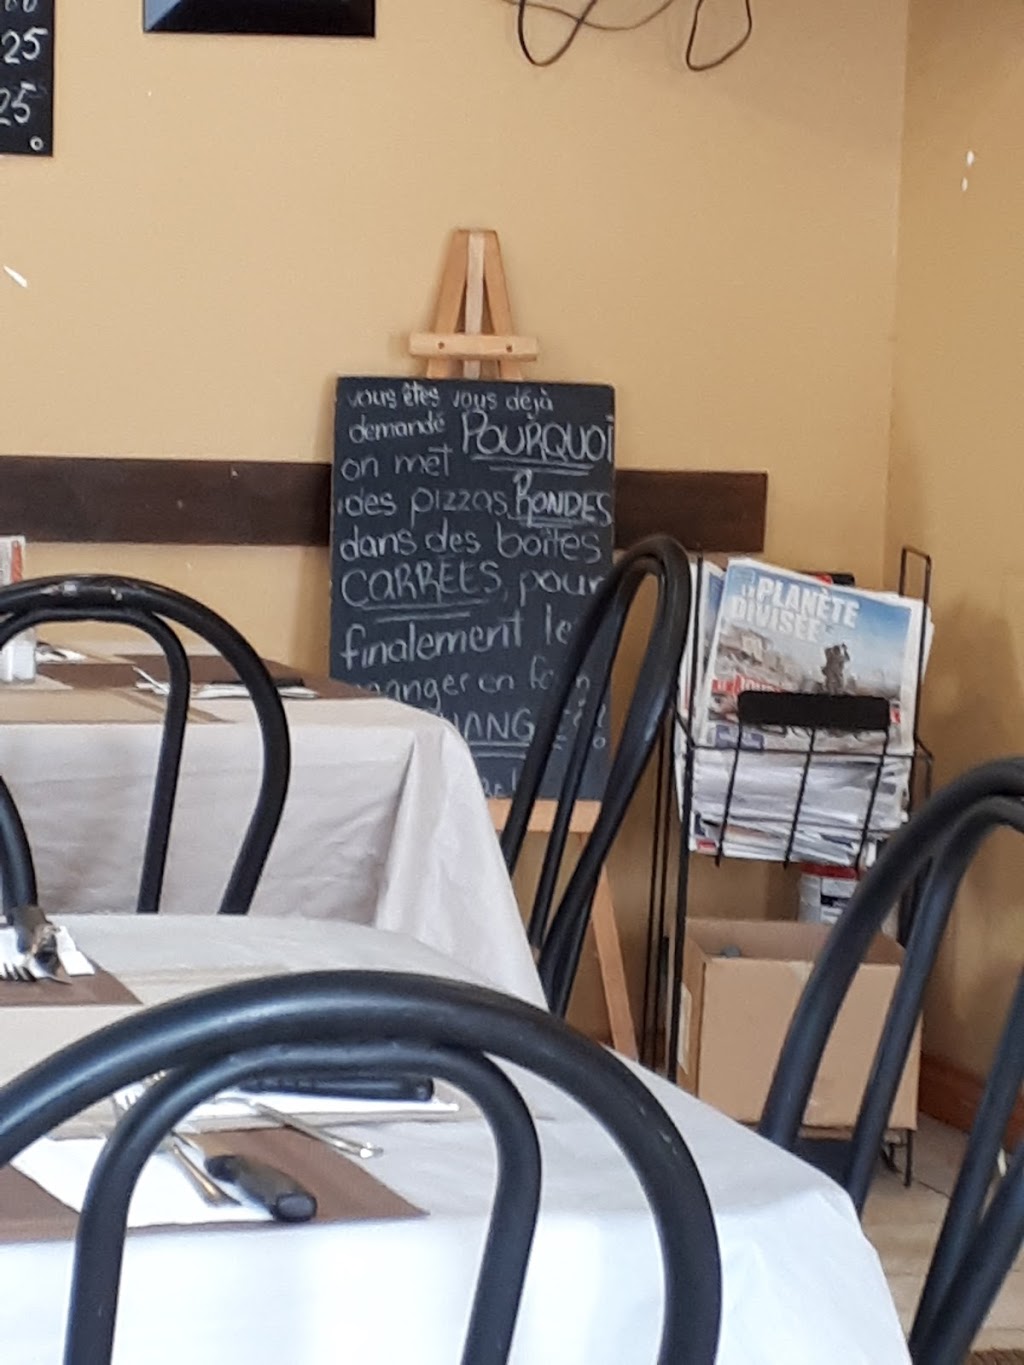 25
25
vous êtes vous déjà
demandé POURQUOI
on met
des pizzas RONDES
dans des boîtes
CARREES, pour
finalement le
manger en
LA PLANÈTE
DIVISÉE